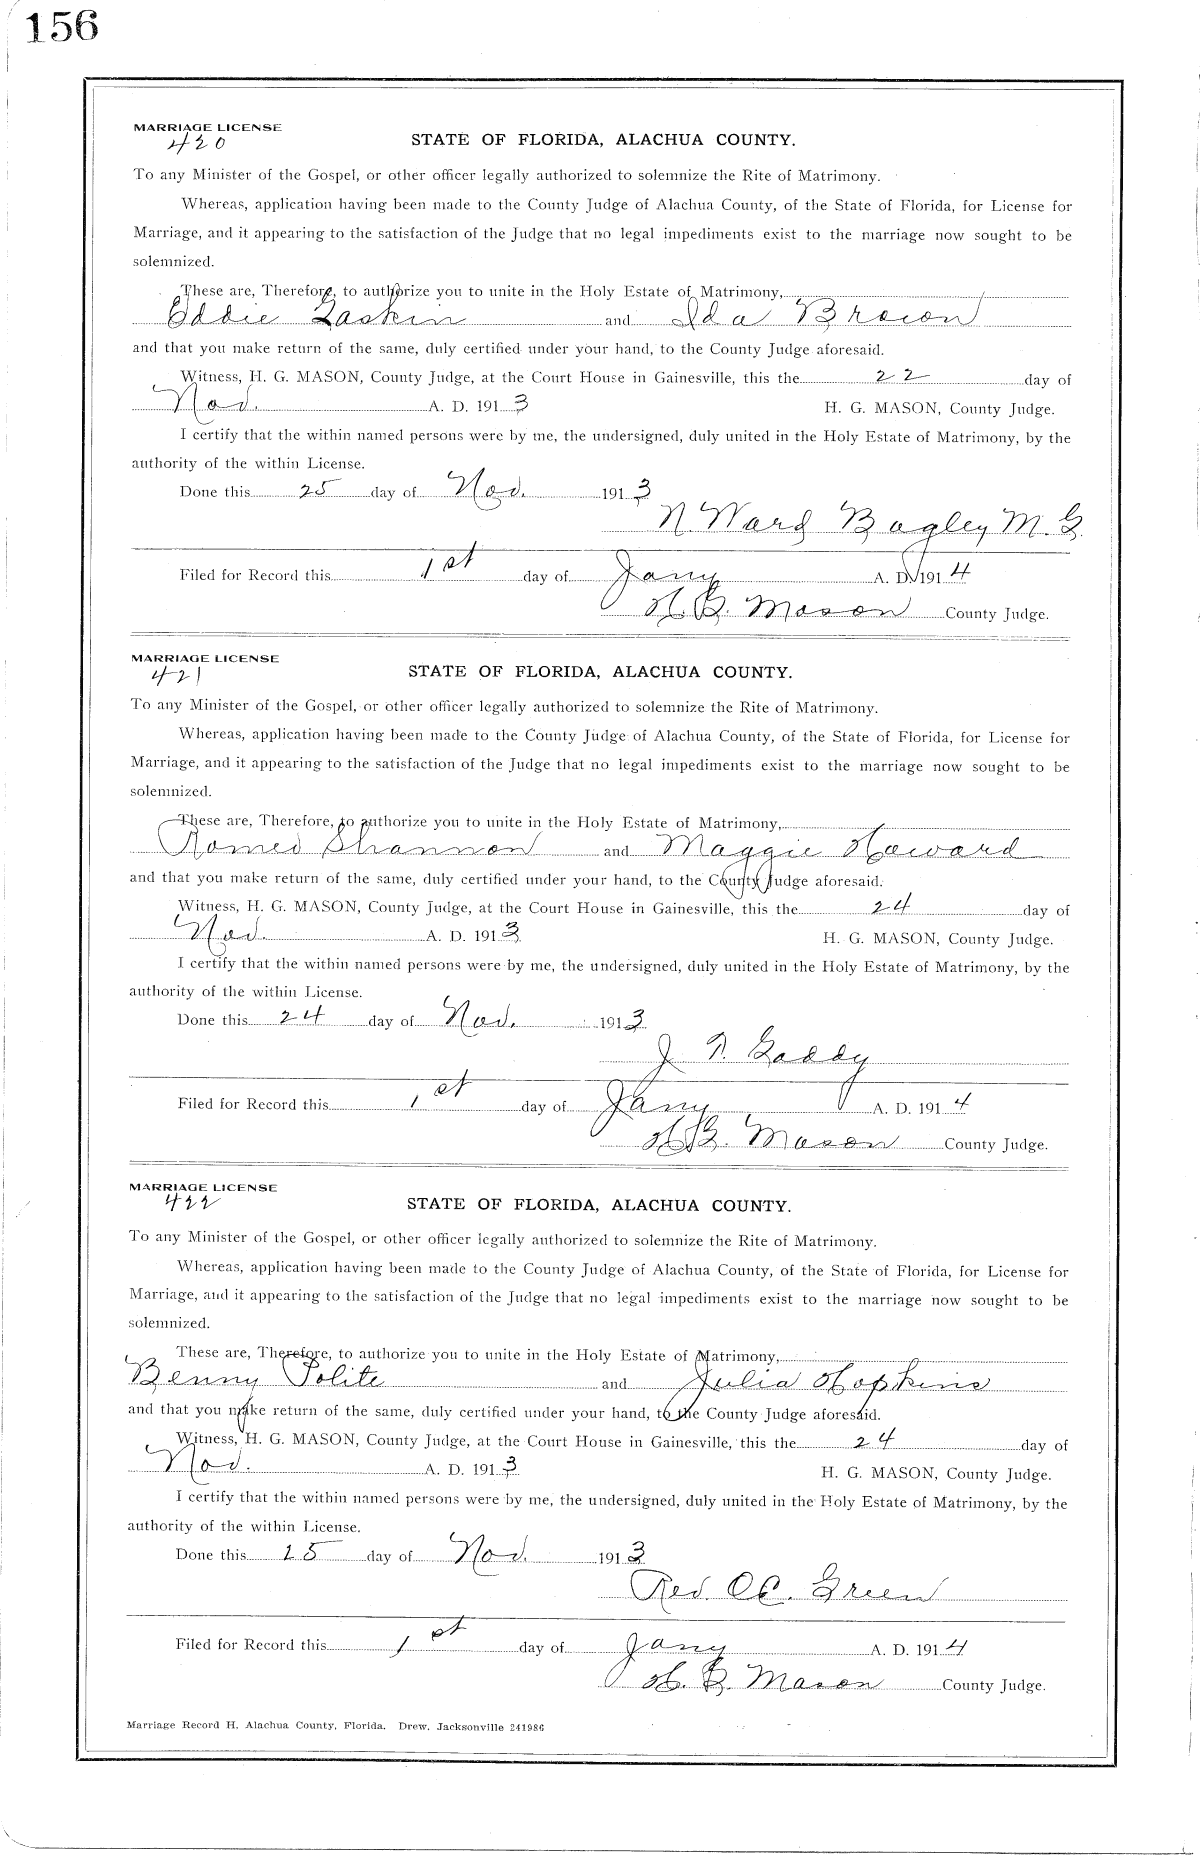 156
MARRIAGE LICENSE
420
STATE OF FLORIDA, ALACHUA COUNTY.
To any Minister of the Gospel, or other officer legally authorized to solemnize the Rite of Matrimony.
Whereas, application having been made to the County Judge of Alachua County, of the State of Florida, for License for
Marriage, and it appearing to the satisfaction of the Judge that no legal impediments exist to the marriage now sought to be
solemnized.
These are, Therefore, to authorize you to unite in the Holy Estate of Matrimony,
Eddie Gaskin and Ida Brown
and that you make return of the same, duly certified under your hand, to the County Judge aforesaid.
Witness, H. G. MASON, County Judge, at the Court House in Gainesville, this the 22 day of
Nov. A. D. 1913 H. G. MASON, County Judge.
I certify that the within named persons were by me, the undersigned, duly united in the Holy Estate of Matrimony, by the
authority of the within License.
Done this 25 day of Nov. 1913
N. Ward Bagley M. G.
Filed for Record this 1st day of Jany A. D. 1914
H. G. Mason County Judge.
MARRIAGE LICENSE
421
STATE OF FLORIDA, ALACHUA COUNTY.
To any Minister of the Gospel, or other officer legally authorized to solemnize the Rite of Matrimony.
Whereas, application having been made to the County Judge of Alachua County, of the State of Florida, for License for
Marriage, and it appearing to the satisfaction of the Judge that no legal impediments exist to the marriage now sought to be
solemnized.
These are, Therefore, to authorize you to unite in the Holy Estate of Matrimony,
Romeo Shannon and Maggie Howard
and that you make return of the same, duly certified under your hand, to the County Judge aforesaid.
Witness, H. G. MASON, County Judge, at the Court House in Gainesville, this the 24 day of
Nov. A. D. 1913 H. G. MASON, County Judge.
I certify that the within named persons were by me, the undersigned, duly united in the Holy Estate of Matrimony, by the
authority of the within License.
Done this 24 day of Nov. 1913
J. Gaddy
Filed for Record this 1st day of Jany A. D. 1914
H. G. Mason County Judge.
MARRIAGE LICENSE
422
STATE OF FLORIDA, ALACHUA COUNTY.
To any Minister of the Gospel, or other officer legally authorized to solemnize the Rite of Matrimony.
Whereas, application having been made to the County Judge of Alachua County, of the State of Florida, for License for
Marriage, and it appearing to the satisfaction of the Judge that no legal impediments exist to the marriage now sought to be
solemnized.
These are, Therefore, to authorize you to unite in the Holy Estate of Matrimony,
Benny Polite and Julia Hopkins
and that you make return of the same, duly certified under your hand, to the County Judge aforesaid.
Witness, H. G. MASON, County Judge, at the Court House in Gainesville, this the 24 day of
Nov. A. D. 1913 H. G. MASON, County Judge.
I certify that the within named persons were by me, the undersigned, duly united in the Holy Estate of Matrimony, by the
authority of the within License.
Done this 25 day of Nov. 1913
Rev. O. C. Green
Filed for Record this 1st day of Jany A. D. 1914
H. G. Mason County Judge.
Marriage Record H, Alachua County, Florida. Drew, Jacksonville 241986